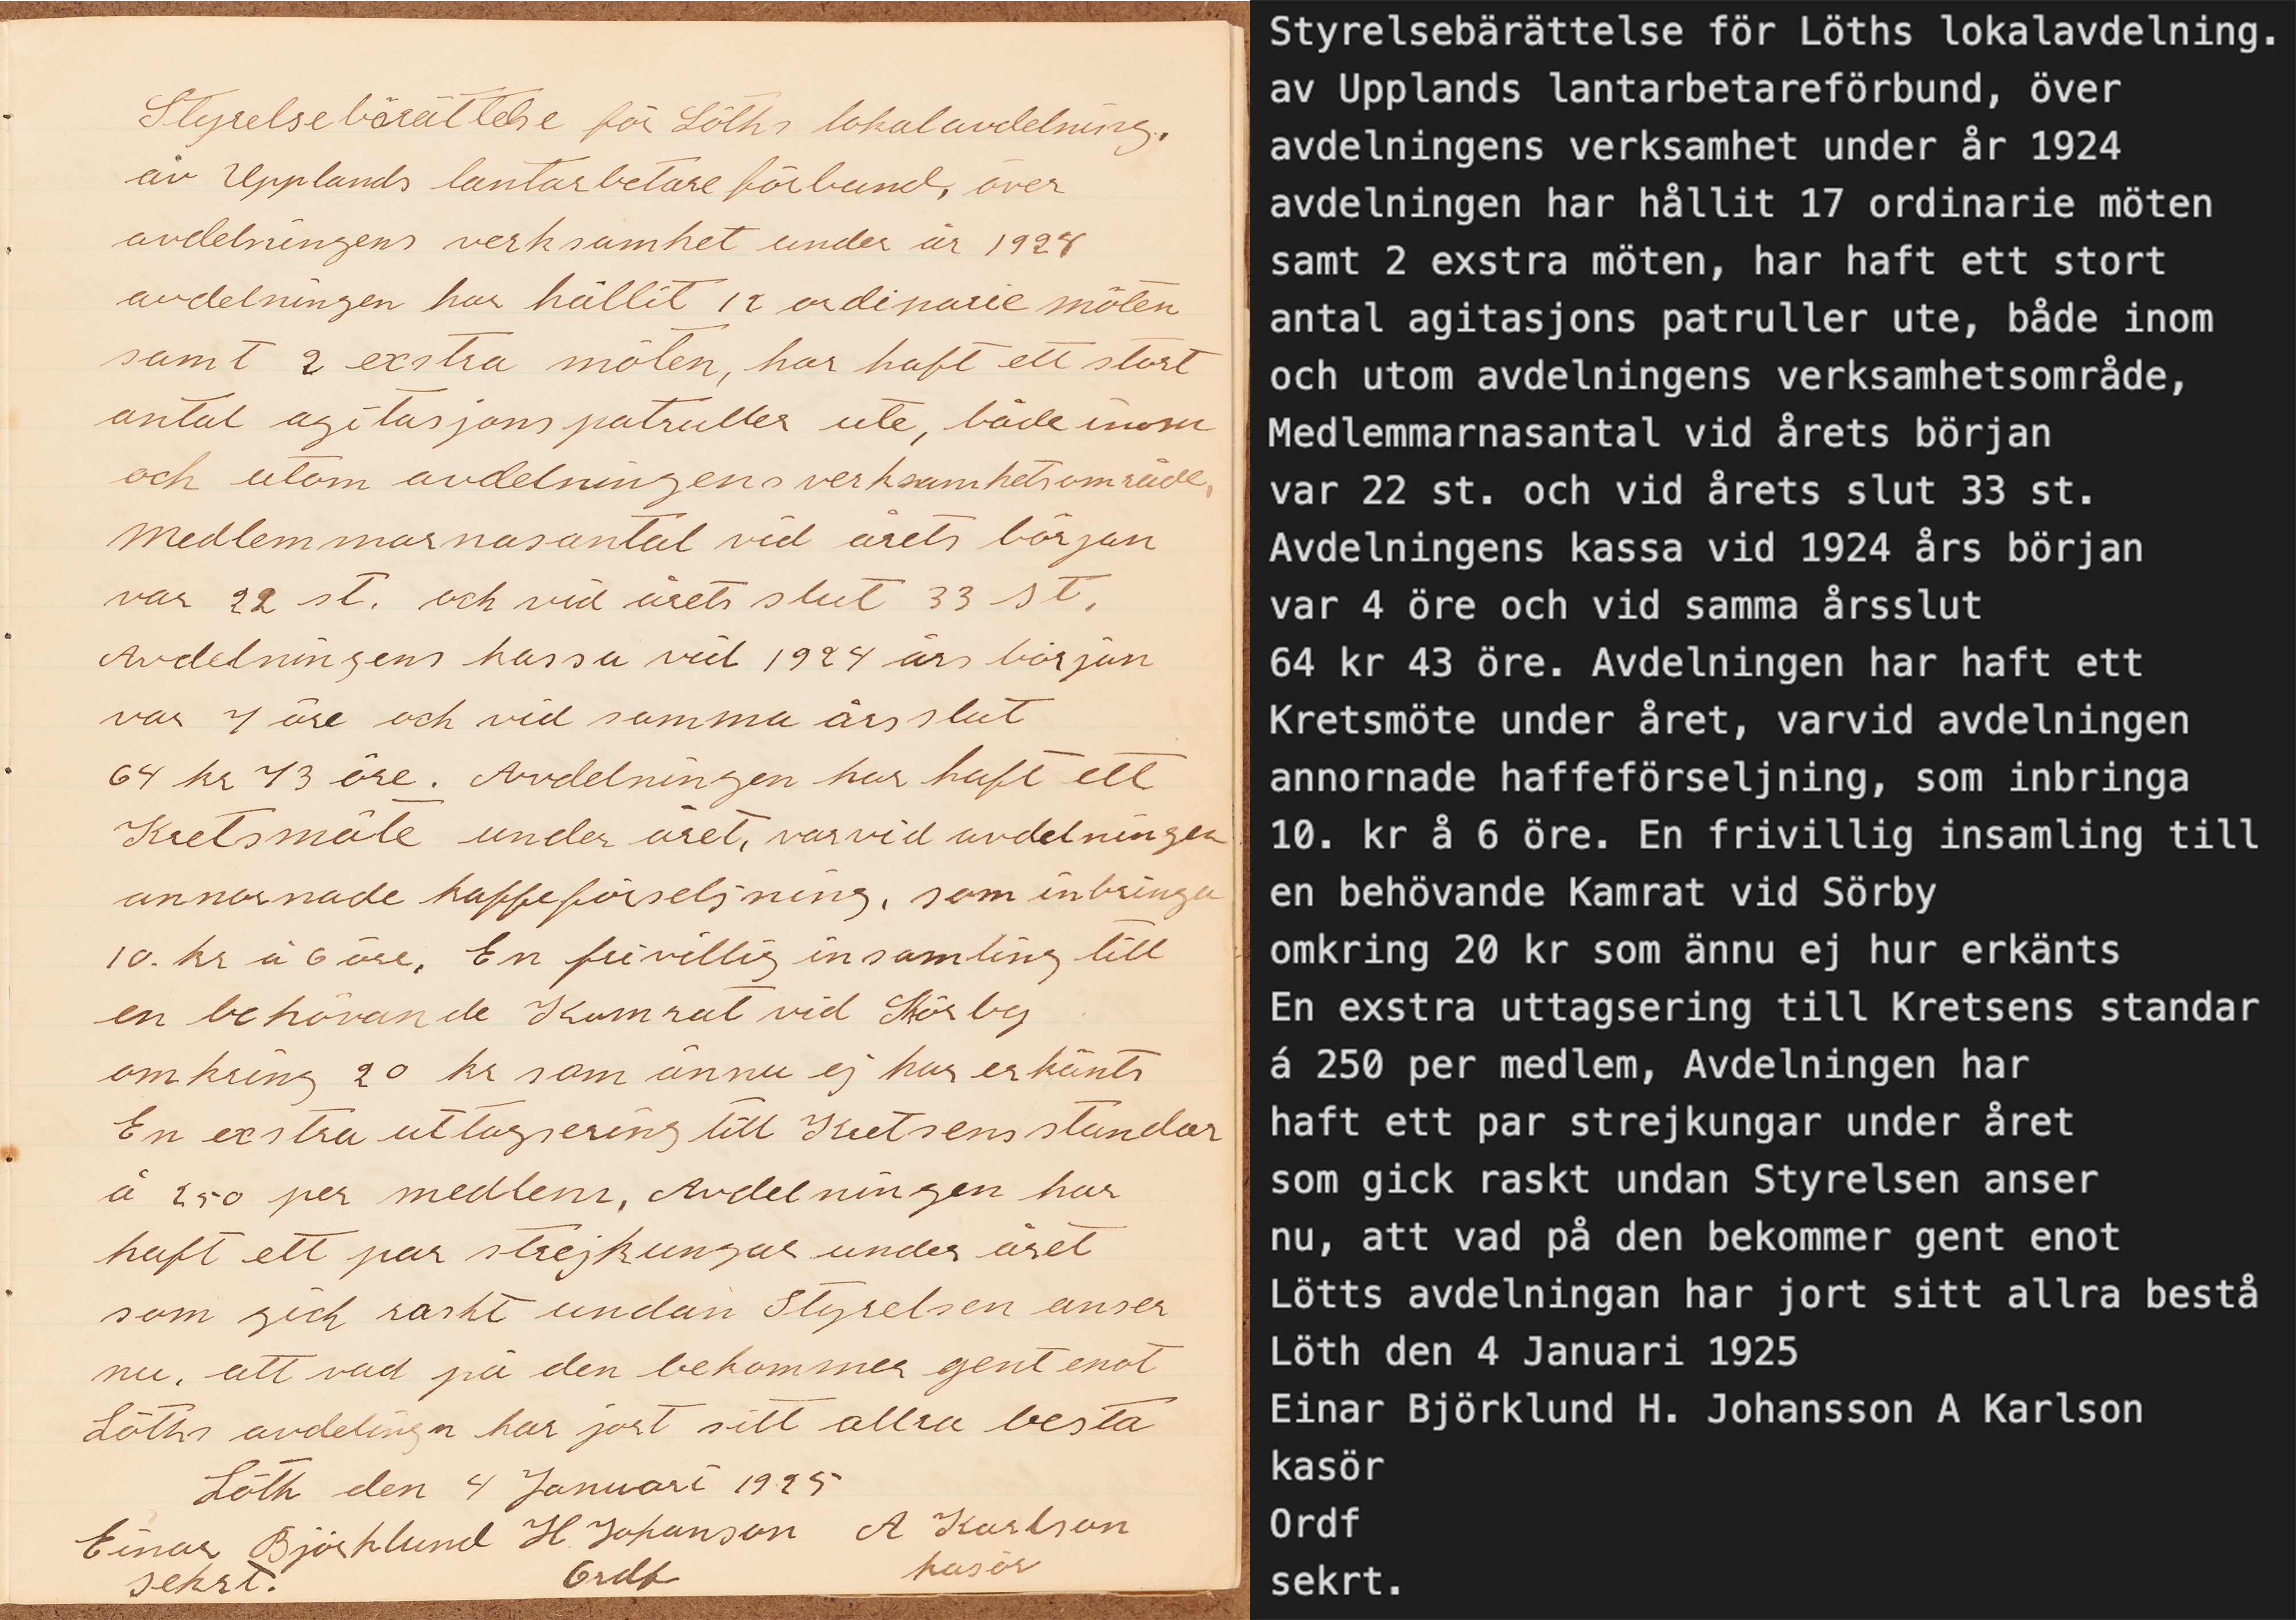 Styrelsebärättelse för Löths lokalavdelning.
av Upplands lantarbetareförbund, över
avdelningens verksamhet under år 1924
avdelningen har hållit 12 ordinarie möten
samt 2 exstra möten, har haft ett stort
antal agitasjons patruller ute, både inom
och utom avdelningens verksamhetsområde,
Medlemmarnasantal vid årets början
var 22 st. och vid årets slut 33 st.
Avdelningens kassa vid 1924 års början
var 4 öre och vid samma årsslut
64 kr 43 öre. Avdelningen har haft ett
Kretsmöte under året, varvid avdelningen
annornade kaffeförseljning, som inbringa
10. kr å 6 öre, En frivillig insamling till
en behövande Kamrat vid Störby
omkring 20 kr som ännu ej har erkänts
En exstra uttagsering till Kretsens standar
å 250 per medlem, Avdelningen har
haft ett par strejkungar under året
som gick raskt undan Styrelsen anser
nu, att vad på den bekommer gent enot
Löths avdelingn har jort sitt allra besta
Löth den 4 Januari 1925
Einar Björklund H Johanson A Karlson
sekrt. Ordf kasör
Styrelsebärättelse för Löths lokalavdelning.
av Upplands lantarbetareförbund, över
avdelningens verksamhet under år 1924
avdelningen har hållit 17 ordinarie möten
samt 2 exstra möten, har haft ett stort
antal agitasjons patruller ute, både inom
och utom avdelningens verksamhetsområde,
Medlemmarnasantal vid årets början
var 22 st. och vid årets slut 33 st.
Avdelningens kassa vid 1924 års början
var 4 öre och vid samma årsslut
64 kr 43 öre. Avdelningen har haft ett
Kretsmöte under året, varvid avdelningen
annornade haffeförseljning, som inbringa
10. kr å 6 öre. En frivillig insamling till
en behövande Kamrat vid Sörby
omkring 20 kr som ännu ej hur erkänts
En exstra uttagsering till Kretsens standar
á 250 per medlem, Avdelningen har
haft ett par strejkungar under året
som gick raskt undan Styrelsen anser
nu, att vad på den bekommer gent enot
Lötts avdelningan har jort sitt allra bestå
Löth den 4 Januari 1925
Einar Björklund H. Johansson A Karlson
kasör
Ordf
sekrt.